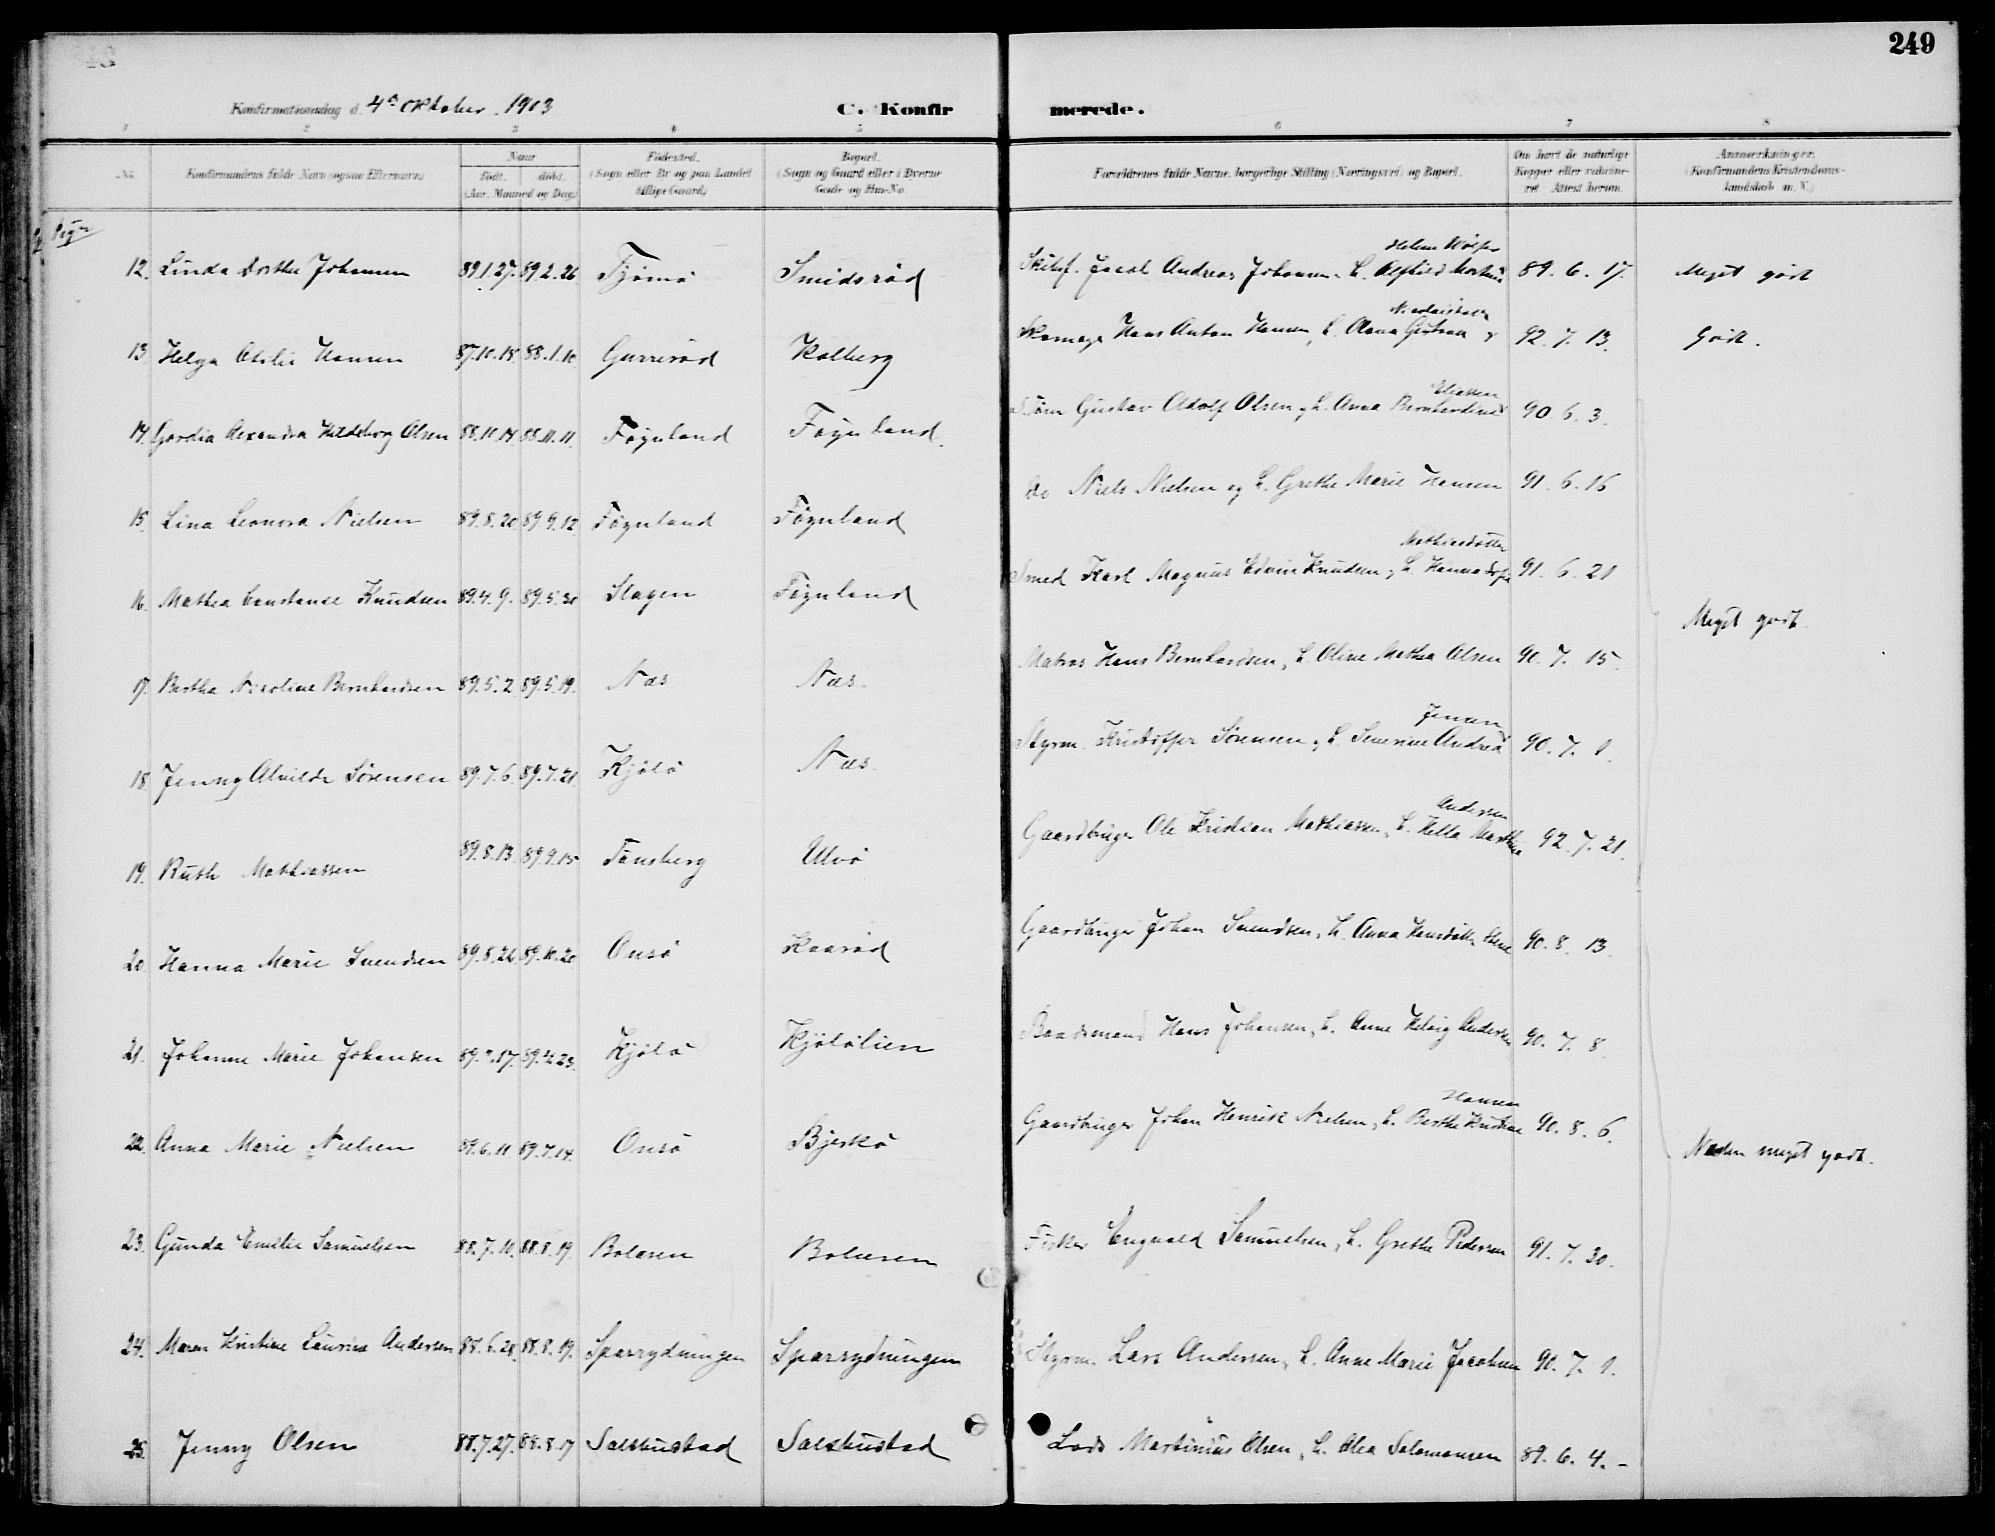 249
Konfirmationsdag d. 4de Oktober 1903 C. Konfir merede.
1 2 3 4 5 6 7 8
No. Konfirmandens fulde Navn (ogsaa Efternavn) Naar Født. døbt. (Aar, Maaned og Dag) Fødested. (Sogn eller By og paa Landet tillige Gaard) Bopæl. (Sogn og Gaard eller i Byerne Gade og Hus-No. Forældrenes fulde Navne, borgerlige Stilling (Næringsvei) og Bopæl. Om havt de naturlige Kopper eller vaccineret. Attest herom. Anmærkninger. (Konfirmandens Kristendomskundskab m. V.)
12. Linda Dorthea Johansen 89.1.27. 89.2.26 Tjømø Smidsrød Jacob Andreas Johansen, 89. 6. 17. Meget godt
13. Helga Otilie Hansen 87.10.18. 88.1.10. Gurrerød Kolberg Hans Anton Hansen, 92. 7. 13. Godt.
14. Gordia Alexandra Hildeborg Olsen 88.10.14. 88.11.11. Føynland Føynland. Gustav Adolf Olsen og H. Anna Bernhardine Eliassen 90 6. 3.
15. Lina Leonora Nielsen 89.8.20. 89.9.12 Føynland Føynland Do Niels Nielsen og H. Grethe Marie Hansen 91. 6. 16
16. Mathea Constance Knudsen 89.4.9. 89.5.30 Slagen Føynland Smed Karl Magnus Edvin Knudsen, H. Hanna Mathiasdatter 91. 6. 21
Meget godt.
17. Bertha Nicoline Bernhardsen 89.5.2. 89.5.19. Næs Næs. Matros Hans Bernhardsen, H. Oline Mathea Olsen 90. 7. 15.
18. Jenny Alvilde Sørensen 89.7.6. 89.7.21. Kjølø Næs. Styrm. Kristoffer Sørensen, H. Severine Andrea Jensen 90. 7. 1.
19. Ruth Mathiassen 89.8.13. 89.9.15 Tønsberg Ulvø Gaardbruger Ole Kristian Mathiassen, H. Andersen 92. 7. 21.
20. Hanna Marie Svendsen 89.8.26 89.10.20 Onsø Kaarød Gaardbruger Johan Svendsen, H. Anna 90. 8. 13.
21. Johanne Marie Johansen 89. 17. 23. Kjølø 	Kjølølien Baadsmand Hans Johansen, H. Anne Helvig Andersen 90. 7. 8.
22. Anna Marie Nielsen 89.6.11 89.7.14. Onsø Bjerkø Gaardbruger Johan Henrik Nielsen, H. Berthe Kristine Hansen 90. 8. 6. Næsten meget godt.
23. Gunda Emilie Samuelsen 88.7.10. 88.8.19. Bolæren Bolæren Fisker Engvald Samuelsen, H. Grethe Pedersen 91. 7. 30.
24. Maren Kristine Laurine Andersen 88.6.28. 88.8.19. Sparrydningen Sparrydningen Styrm. Lars Andersen, H. Anne Marie Jacobsen 90. 7. 1.
25. Jenny Olsen 88.7.27. 88.8.17 Salthustad Salthustad Lods Martinius Olsen, H. Olea Salomonsen 89. 6. 4. -